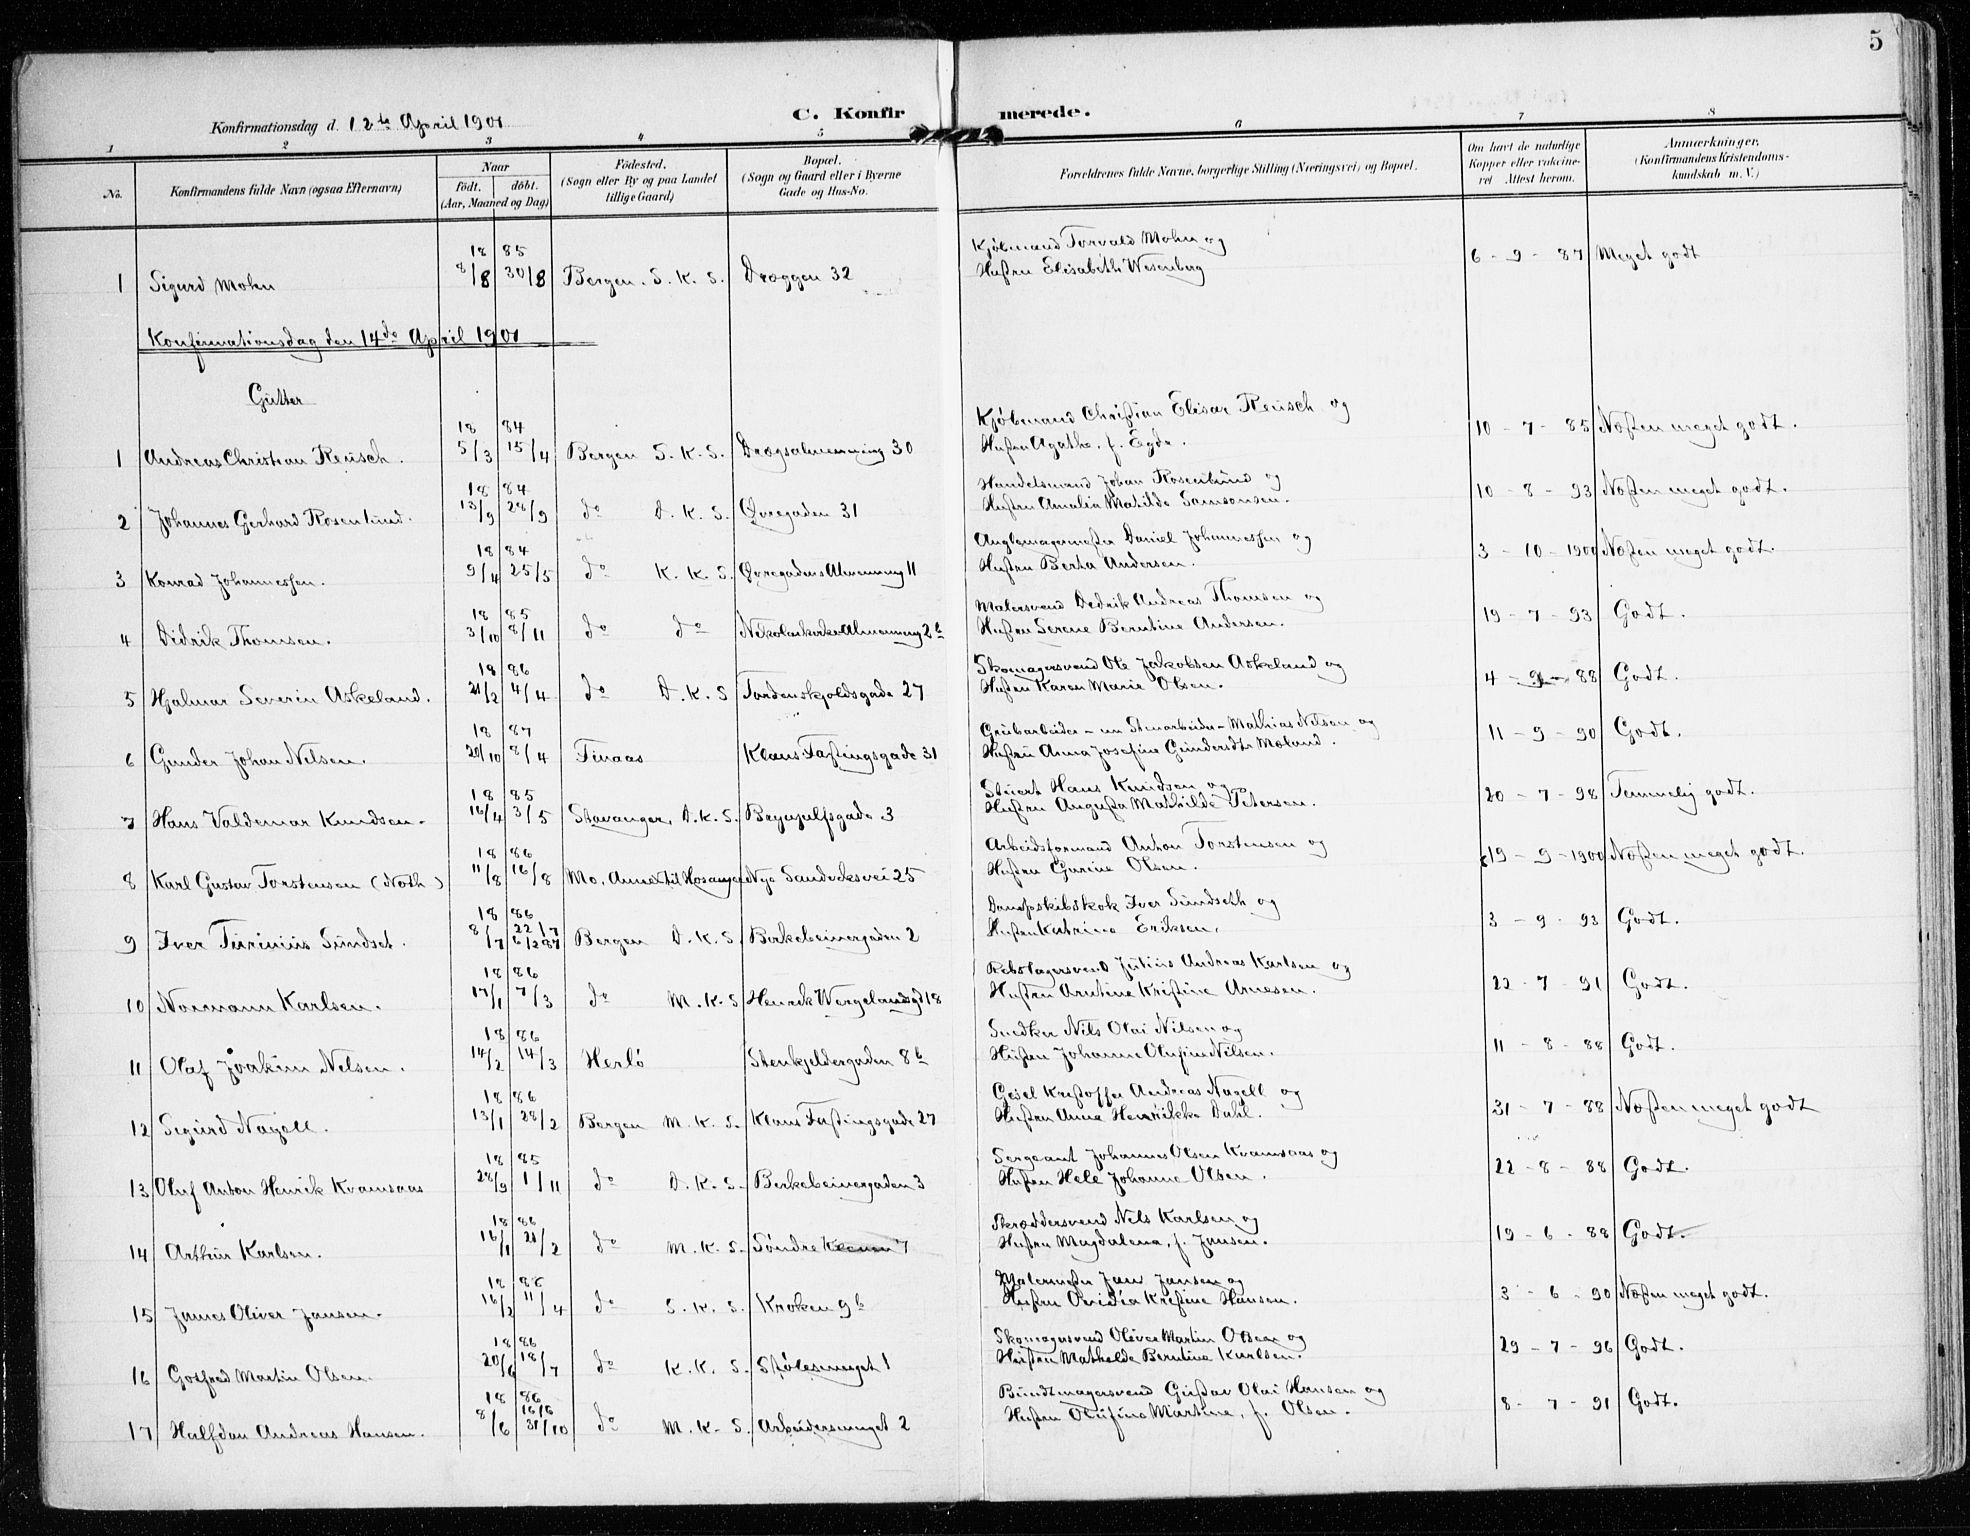 5
C. Konfirmerede.
Konfirmationsdag d. 12te April 1901
1 2 3 4 5 6 7 8
No. Konfirmandens fulde Navn (ogsaa Efternavn) Naar født. døbt. (Aar, Maaned og Dag) Födested. (Sogn eller By og paa Landet tillige Gaard) Bopæl. (Sogn og Gaard eller i Byerne Gade og Hus-No. Forældrenes fulde Navne, borgerlige Stilling (Næringsvei) og Bopæl. Om havt de naturlige Kopper eller vakcineret Attest herom. Anmærkninger. (Konfirmandens Kristendomskundskab m. V.)
18 85 Kjøbmand Torvald Mohn og
1 Sigurd Mohn 8/8 30/8 Bergen. S. K. S. Dræggen 32 Hustru Elisabeth Wesenberg 6 - 9 - 87 Meget godt
Konfirmationsdag den 14de April 1901
Gutter
18 84 Kjøbmand Christian Elisar Reusch og
1 Andreas Christian Reusch. 5/3 15/4 Bergen S. K. S. Drægsalmenning 30 Hustru Agathe, f. Egde. 10 - 7 - 85 Næsten meget godt.
18 84 Handelsmand Johan Rosenlund og
2 Johannes Gerhard Rosenlund. 13/9 28/9 do D. K. S. Øvregaden 31 Hustru Amalia Matilde Samsonsen. 10 - 8 - 93 Næsten meget godt.
18 84 Daniel Johannessen og
3 Konrad Johannessen. 9/4 25/5 do K. K. S. Øvregadens Almenning 11 Hustru Berta Andersen. 3 - 10 - 1900 Næsten meget godt.
18 85 Malersvend Dedrik Andreas Thomsen og
4 Didrik Thomsen. 3/10 8/11 do do Nikolaikirke Almenning 2b Hustru Serene Berntine Andersen. 19 - 7 - 93 Godt.
18 86 Skomagersvend Ole Jakobsen Askeland og
5 Hjalmar Severin Askeland. 21/2 4/4 do D. K. S Tordenskjoldsgade 27 Hustru Karen Marie Olsen. 4 - 9 - 88 Godt.
18 87 Grubarbeider - nu Stenarbeider - Mathias Nelsen og
6 Gunder Johan Nelsen. 20/10 8/4 Finaas Klaus Fastingsgade 31 Hustru Anna Josefine Gundersdtr Moland. 11 - 9 - 90 Godt.
18 85 Stuert Hans Knudsen og
7 Hans Valdemar Knudsen. 16/4 3/5 Stavanger, D. K. S. Brynjulfsgade 3 Hustru Augusta Mathilde Petersen. 20 - 7 - 98 Temmelig godt.
18 86 Arbeidsformand Anton Torstensen og
8 Karl Gustav Torstensen (Noth) 11/8 16/8 Mo, Annex til Hosanger Nye Sandviksvei 25 Hustru Gurine Olsen. 19 - 9 - 1900 Næsten meget godt.
18 86 Dampskibskok Iver Sundseth og
9 Iver Turinius Sundset. 8/7 22/7 6/2 87 Bergen D. K. S. Birkebeinergaden 2 Hustru Katrine Eriksen. 3 - 9 - 93 Godt.
18 86 Rebslagersvend Julius Andreas Karlsen og
10 Normann Karlsen. 17/1 7/3 do M. K. S Henrik Wergelandsgd 18 Hustru Arntine Kristine Arnesen. 22 - 7 - 91 Godt.
18 86 Snedker Nils Olai Nilsen og
11 Olaf Joakim Nelsen. 14/2 14/3 Herlö Stenkjeldergaden 8b Hustru Johanne Olufine Nilsen. 11 - 8 - 88 Godt.
18 86 Kristoffer Andreas Nagell og
12 Sigurd Nagell. 13/1 28/2 Bergen M. K. S. Klaus Fastingsgade 27 Hustru Anna Henrikke Dahl. 31 - 7 - 88 Næsten meget godt
18 85 Sergeant Johannes Olsen Kvamsaas og
13 Oluf Anton Henrik Kvamsaas 28/9 1/11 do D. K. S. Birkebeinergaden 3 Hustru Hele Johanne Olsen. 22 - 8 - 88 Godt.
18 86 Skræddersvend Nels Karlsen og
14 Arthur Karlsen. 16/1 21/2 do M. K. S. Søndre 7 Hustru Magdalena, f. Jansen. 19 - 6 - 88 Godt.
18 86 Malermester Jan Jansen og
15 James Oliver Jansen. 16/2 11/4 do S. K. S. Kroken 9b Hustru Ovidia Kristine Hansen. 3 - 6 - 90 Næsten meget godt.
18 86 Skomagersvend Oliver Martin Olsen og
16 Gotfred Martin Olsen. 20/6 18/7 do K. K. S. Stølesmuget 1 Hustru Mathelde Berntine Karlsen. 29 - 7 - 96 Godt.
18 86 Bundtmagersvend Gustav Olai Hansen og
17 Halfdan Andreas Hansen. 8/6 16/6 31/10 do M. K. S. Arbeidersmuget 2 Hustru Olufine Martine, f. Olsen. 8 - 7 - 91 Godt.